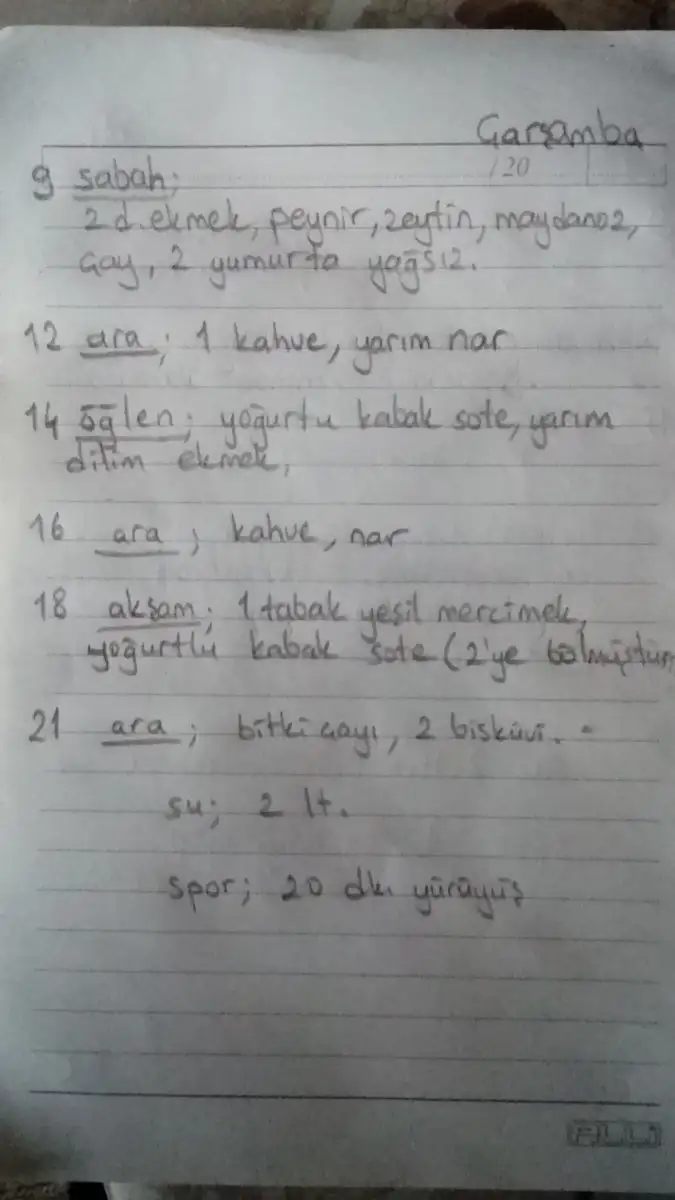 Çarşamba
/20
9 sabah;
2 d. ekmek, peynir, zeytin, maydanoz,
çay, 2 yumurta yağsız.
12 ara; 1 kahve, yarım nar
14 öğlen; yoğurtu kabak sote, yarım
dilim ekmek,
16 ara; kahve, nar
18 akşam; 1 tabak yeşil mercimek,
yoğurtlu kabak sote (2'ye bölmüştüm
21 ara; bitki çayı, 2 bisküvi.
su; 2 lt.
spor; 20 dk. yürüyüş